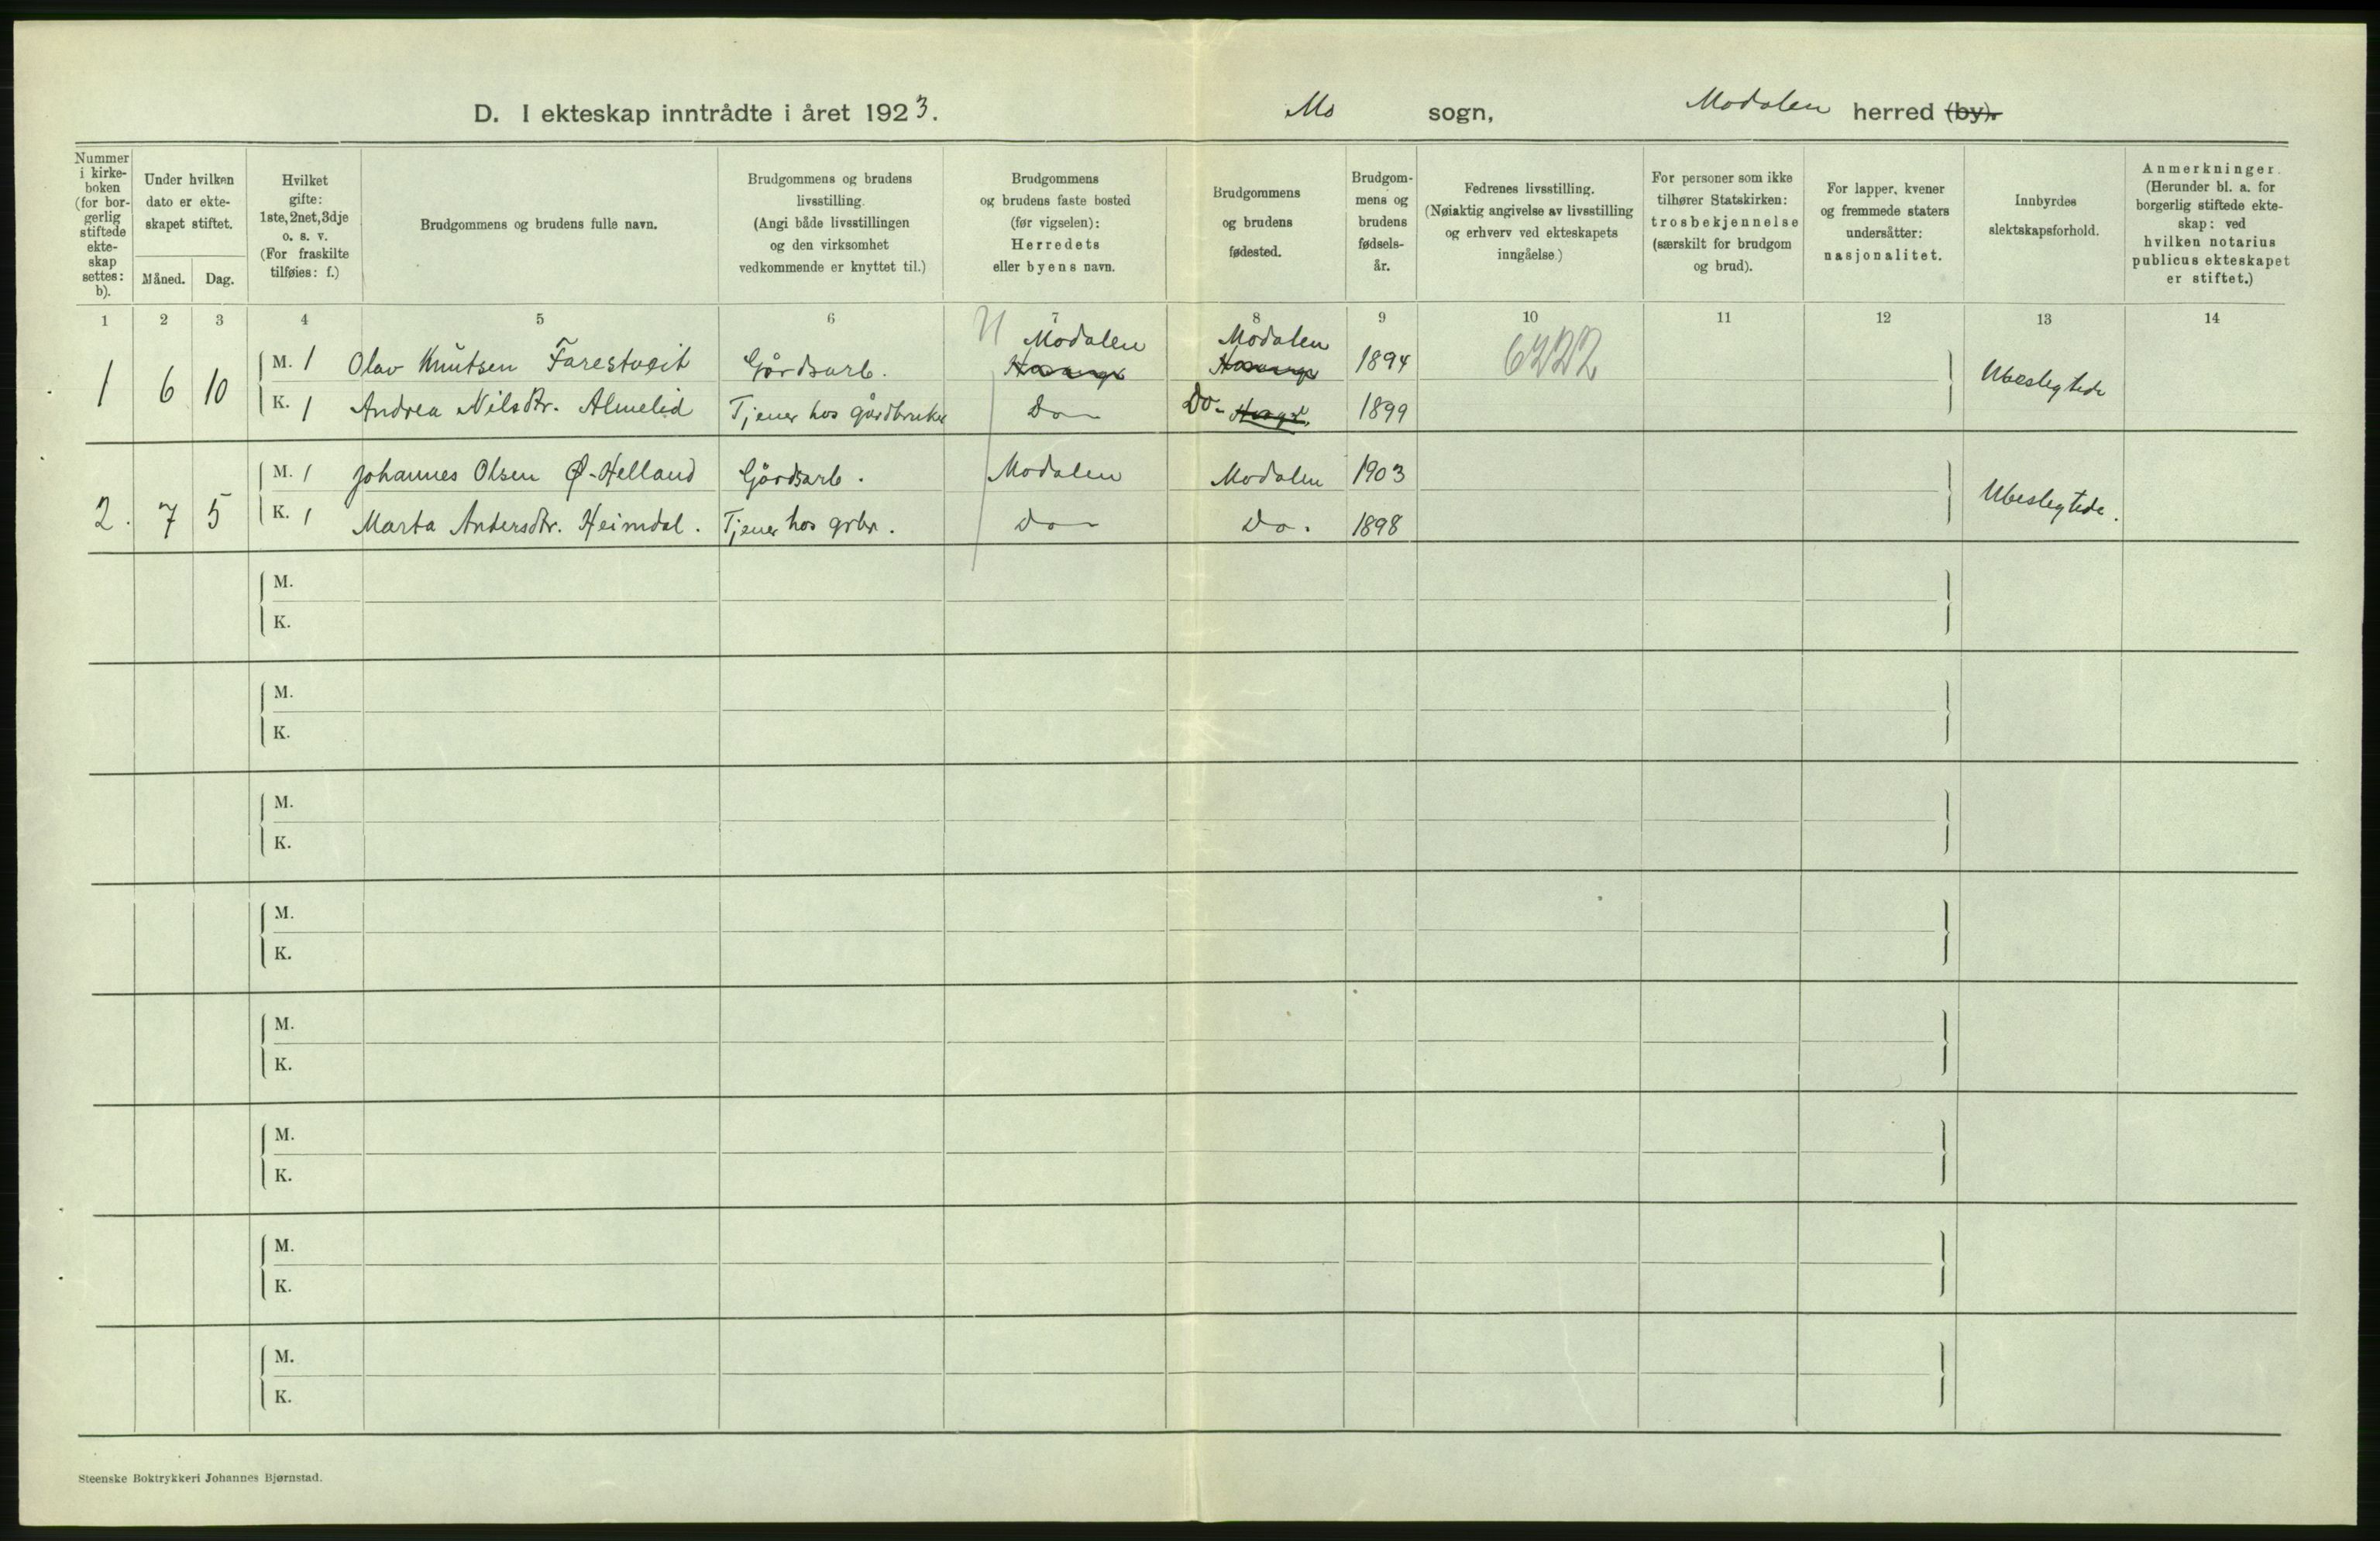 D. I ekteskap inntrådte i året 1923. Mo sogn, Modalen herred (by).
Nummer i kirke-boken (for bor-gerlig stiftede ekte-skap settes: b).
Under hvilken dato er ekte-skapet stiftet.
Måned. Dag.
Hvilket gifte: 1ste, 2net, 3dje o. s. v. (For fraskilte tilføies: f.)
Brudgommens og brudens fulle navn.
Brudgommens og brudens livsstilling. (Angi både livsstillingen og den virksomhet vedkommende er knyttet til.)
Brudgommens og brudens faste bosted (før vigselen): Herredets eller byens navn.
Brudgommens og brudens fødested.
Brudgom-mens og brudens fødsels-år.
Fedrenes livsstilling. (Nøiaktig angivelse av livsstilling og erhverv ved ekteskapets inngåelse.)
For personer som ikke tilhører Statskirken: trosbekjennelse (særskilt for brudgom og brud).
For lapper, kvener og fremmede staters undersåtter: nasjonalitet.
Innbyrdes slektskapsforhold.
Anmerkninger. (Herunder bl. a. for borgerlig stiftede ekte-skap: ved hvilken notarius publicus ekteskapet er stiftet.)
1 2 3 4 5 6 7 8 9 10 11 12 13 14
Modalen Modalen
1 6 10 M. 1 Olav Knutsen Farestveit Gårdsarb. 1894 6222 Ubeslegtede
K. 1 Andrea Nilsdtr. Almelid Tjener hos gårdbruker Do Do 1899
2. 7 5 M. 1 Johannes Olsen Ø-Helland Gårdsarb. Modalen Modalen 1903 Ubeslegtede.
K. 1 Marta Andersdtr. Heimdal. Tjener hos grbr. Do Do. 1898
M.
K.
M.
K.
M.
K.
M.
K.
M.
K.
M.
K.
M.
K.
M.
K.
Steenske Boktrykkeri Johannes Bjørnstad.